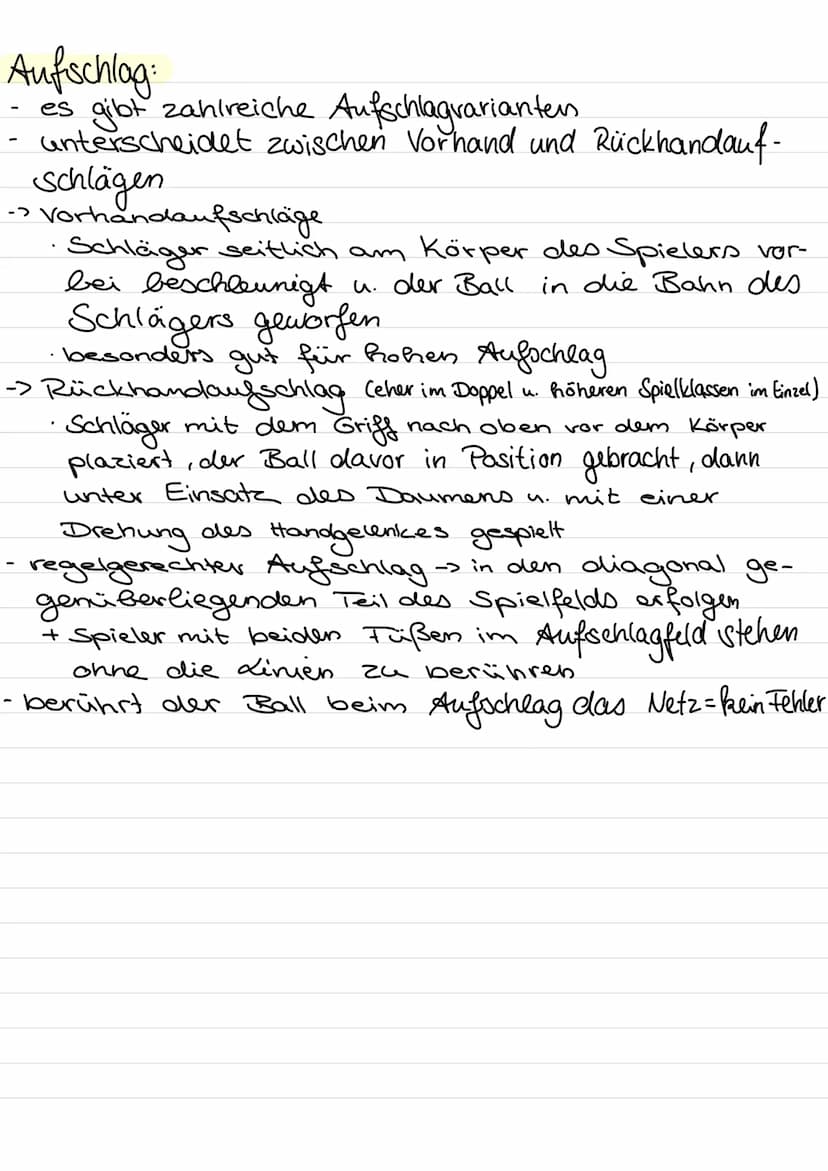 Aufschlag:
- es gibt zahlreiche Aufschlagvarianten
- unterscheidet zwischen Vorhand und Rückhandauf-
schlägen
-> Vorhandaufschläge
· Schläger seitlich am Körper des Spielers vor-
bei beschleunigt u. der Ball in die Bahn des
Schlägers geworfen
· besonders gut für hohen Aufschlag
-> Rückhandaufschlag (eher im Doppel u. höheren Spielklassen im Einzel)
· Schläger mit dem Griff nach oben vor dem Körper
plaziert, der Ball davor in Position gebracht, dann
unter Einsatz des Daumens u. mit einer
Drehung des Handgelenkes gespielt
- regelgerechter Aufschlag -> in den diagonal ge-
genüberliegenden Teil des Spielfelds erfolgen
+ Spieler mit beiden Füßen im Aufschlagfeld stehen
ohne die Linien zu berühren
- berührt der Ball beim Aufschlag das Netz = kein Fehler